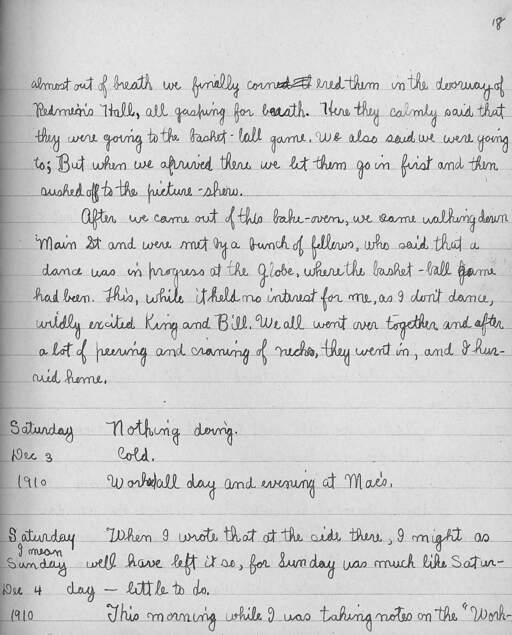 18
almost out of breath we finally cornered them in the doorway of
Redmen's Hall, all gasping for breath. Here they calmly said that
they were going to the basket-ball game. We also said we were going
to; But when we arrived there we let them go in first and then
rushed off to the picture-show.
After we came out of this bake-oven, we came walking down
Main St and were met by a bunch of fellows, who said that a
dance was in progress at the Globe, where the basket-ball game
had been. This, while it held no interest for me, as I don't dance,
wildly excited King and Bill. We all went over together and after
a lot of peering and craning of necks, they went in, and I hur-
ried home.
Saturday Nothing doing.
Dec 3 Cold.
1910 Worked all day and evening at Mac's.
Saturday When I wrote that at the side there, I might as
I mean
Sunday well have left it so, for Sunday was much like Satur-
Dec 4 day — little to do.
1910 This morning while I was taking notes on the "Work-